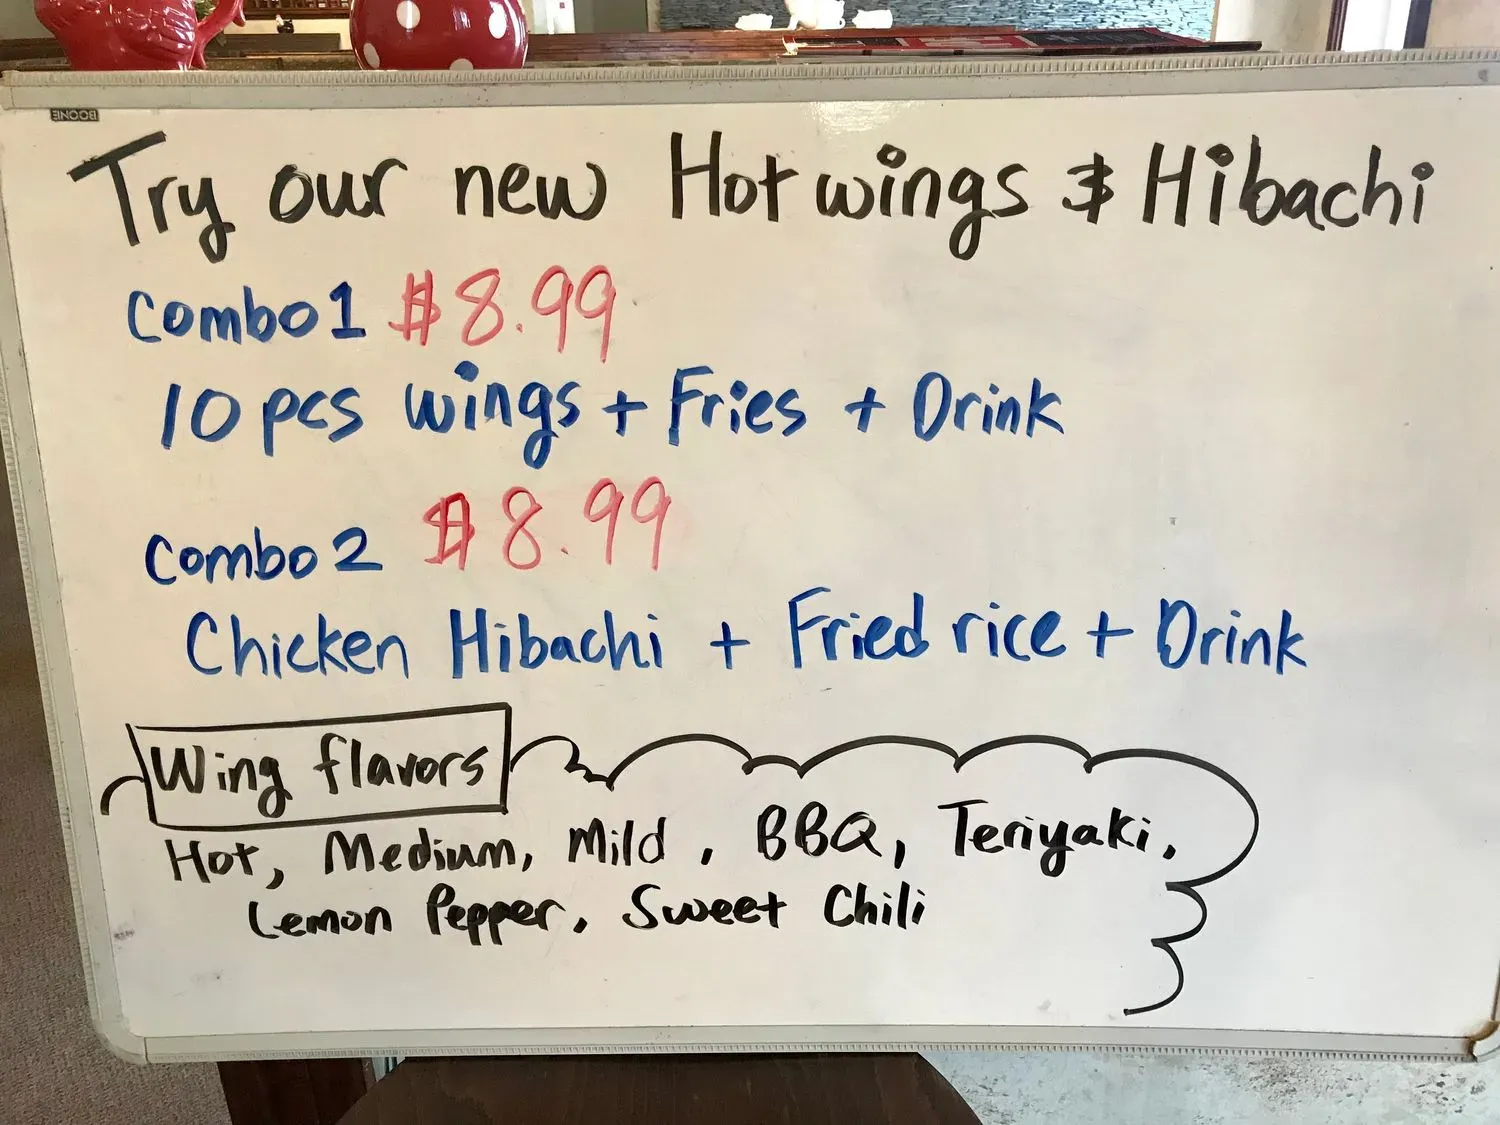 BOONE
Try our new Hot wings & Hibachi
Combo 1 $8.99
10 pcs wings + Fries + Drink
Combo 2 $8.99
Chicken Hibachi + Fried rice + Drink
Wing flavors
Hot, Medium, Mild, BBQ, Teriyaki,
Lemon Pepper, Sweet Chili